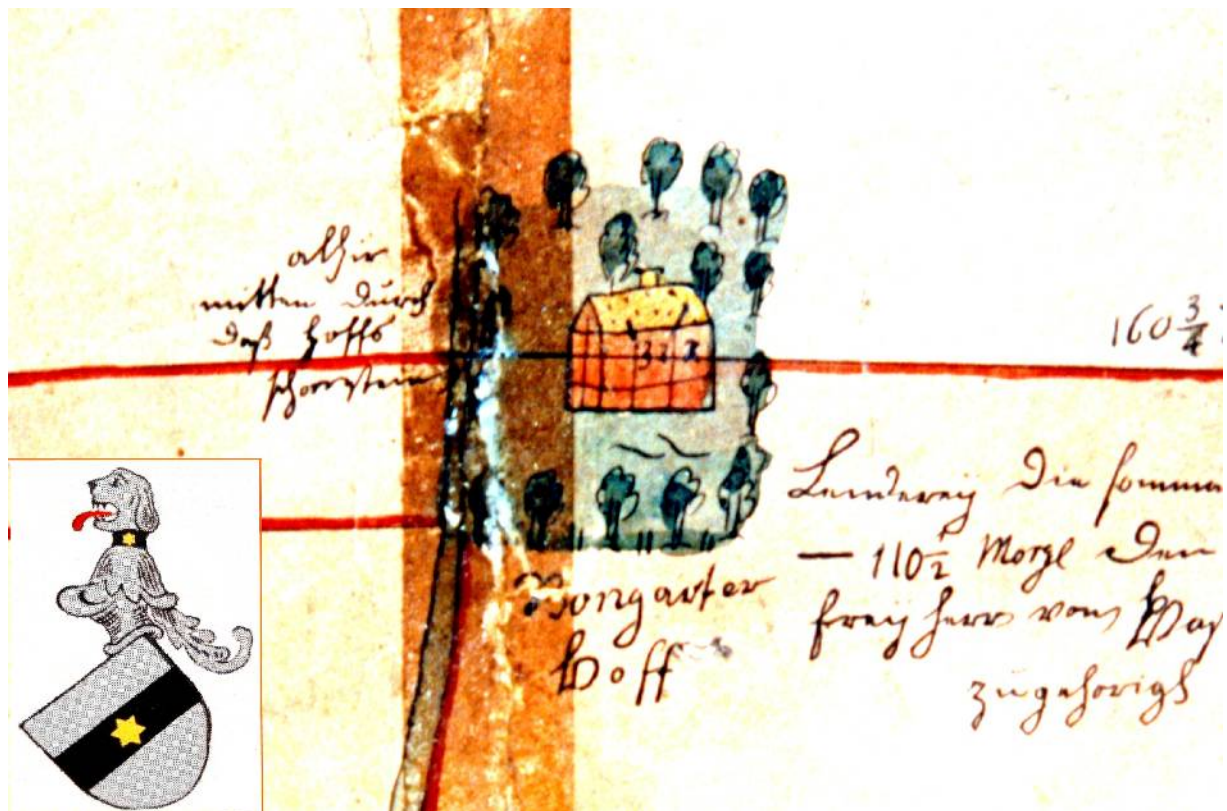 alhir
mitten durch
daß hoffs
schornstein
160 3/4
Bongarter
Hoff
Lenderey die somma
— 110 1/2 Morge den
frey herr vom
zugehörigh